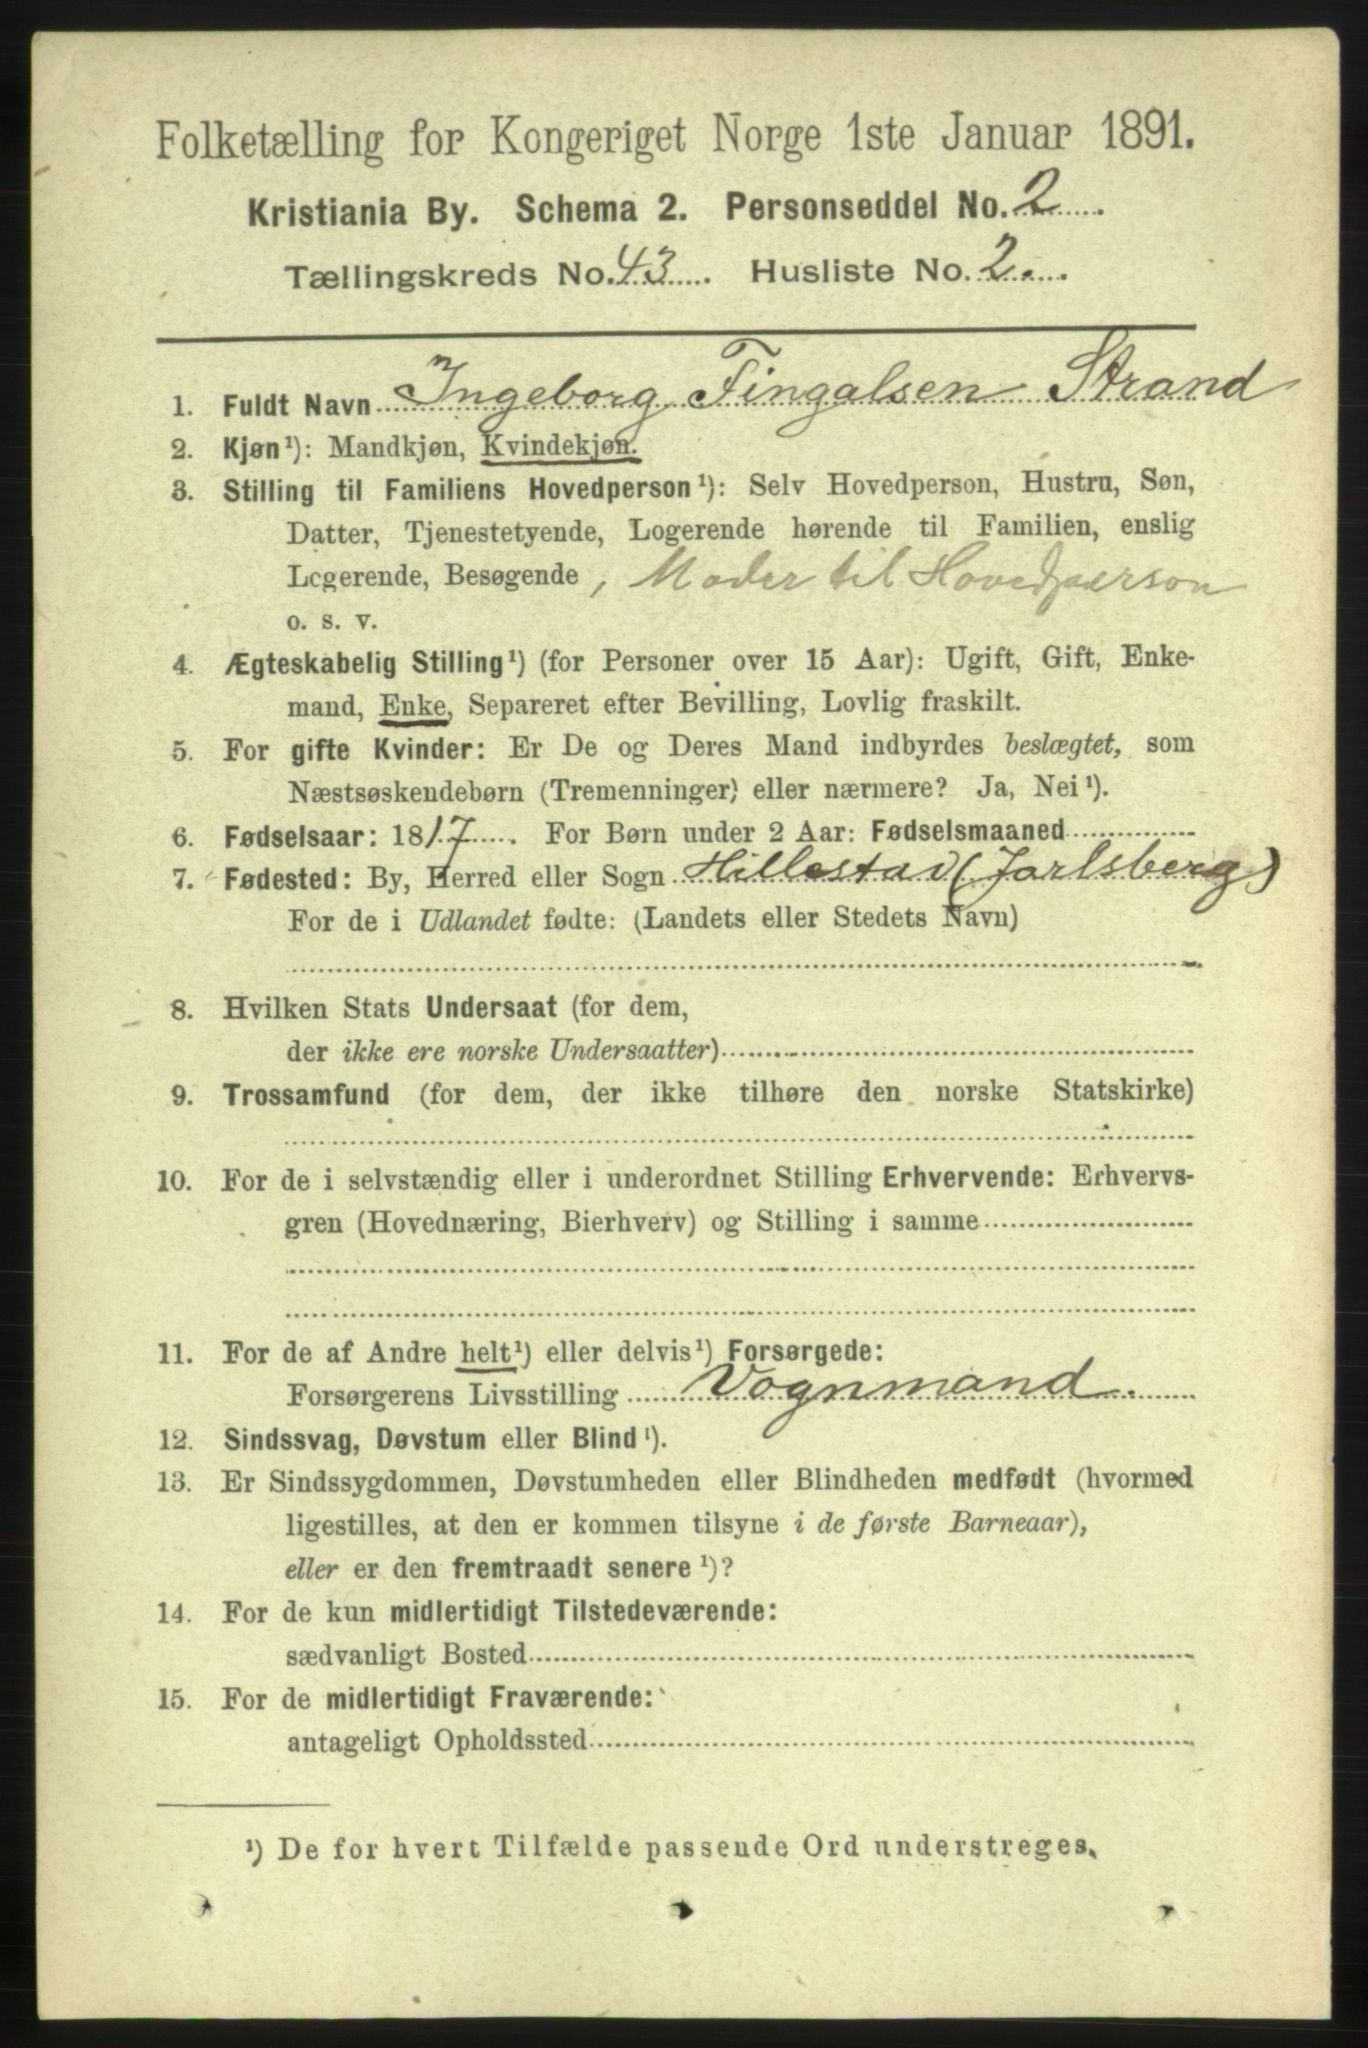 Folketælling for Kongeriget Norge 1ste Januar 1891.
Kristiania By. Schema 2. Personseddel No. 2
Tællingskreds No. 43. Husliste No. 2.
1. Fuldt Navn Ingeborg Fingalsen Strand
2. Kjøn¹): Mandkjøn, Kvindekjøn.
3. Stilling til Familiens Hovedperson¹): Selv Hovedperson, Hustru, Søn,
Datter, Tjenestetyende, Logerende hørende til Familien, enslig
Logerende, Besøgende, Moder til Hovedperson
o. s. v.
4. Ægteskabelig Stilling¹) (for Personer over 15 Aar): Ugift, Gift, Enke-
mand, Enke, Separeret efter Bevilling, Lovlig fraskilt.
5. For gifte Kvinder: Er De og Deres Mand indbyrdes beslægtet, som
Næstsøskendebørn (Tremenninger) eller nærmere? Ja, Nei¹).
6. Fødselsaar: 1817. For Børn under 2 Aar: Fødselsmaaned
7. Fødested: By, Herred eller Sogn Hillestad (Jarlsberg)
For de i Udlandet fødte: (Landets eller Stedets Navn)
8. Hvilken Stats Undersaat (for dem,
der ikke ere norske Undersaatter)
9. Trossamfund (for dem, der ikke tilhøre den norske Statskirke)
10. For de i selvstændig eller i underordnet Stilling Erhvervende: Erhvervs-
gren (Hovednæring, Bierhverv) og Stilling i samme
11. For de af Andre helt¹) eller delvis¹) Forsørgede:
Forsørgerens Livsstilling Vognmand.
12. Sindssvag, Døvstum eller Blind¹).
13. Er Sindssygdommen, Døvstumheden eller Blindheden medfødt (hvormed
ligestilles, at den er kommen tilsyne i de første Barneaar),
eller er den fremtraadt senere¹)?
14. For de kun midlertidigt Tilstedeværende:
sædvanligt Bosted
15. For de midlertidigt Fraværende:
antageligt Opholdssted
¹) De for hvert Tilfælde passende Ord understreges.